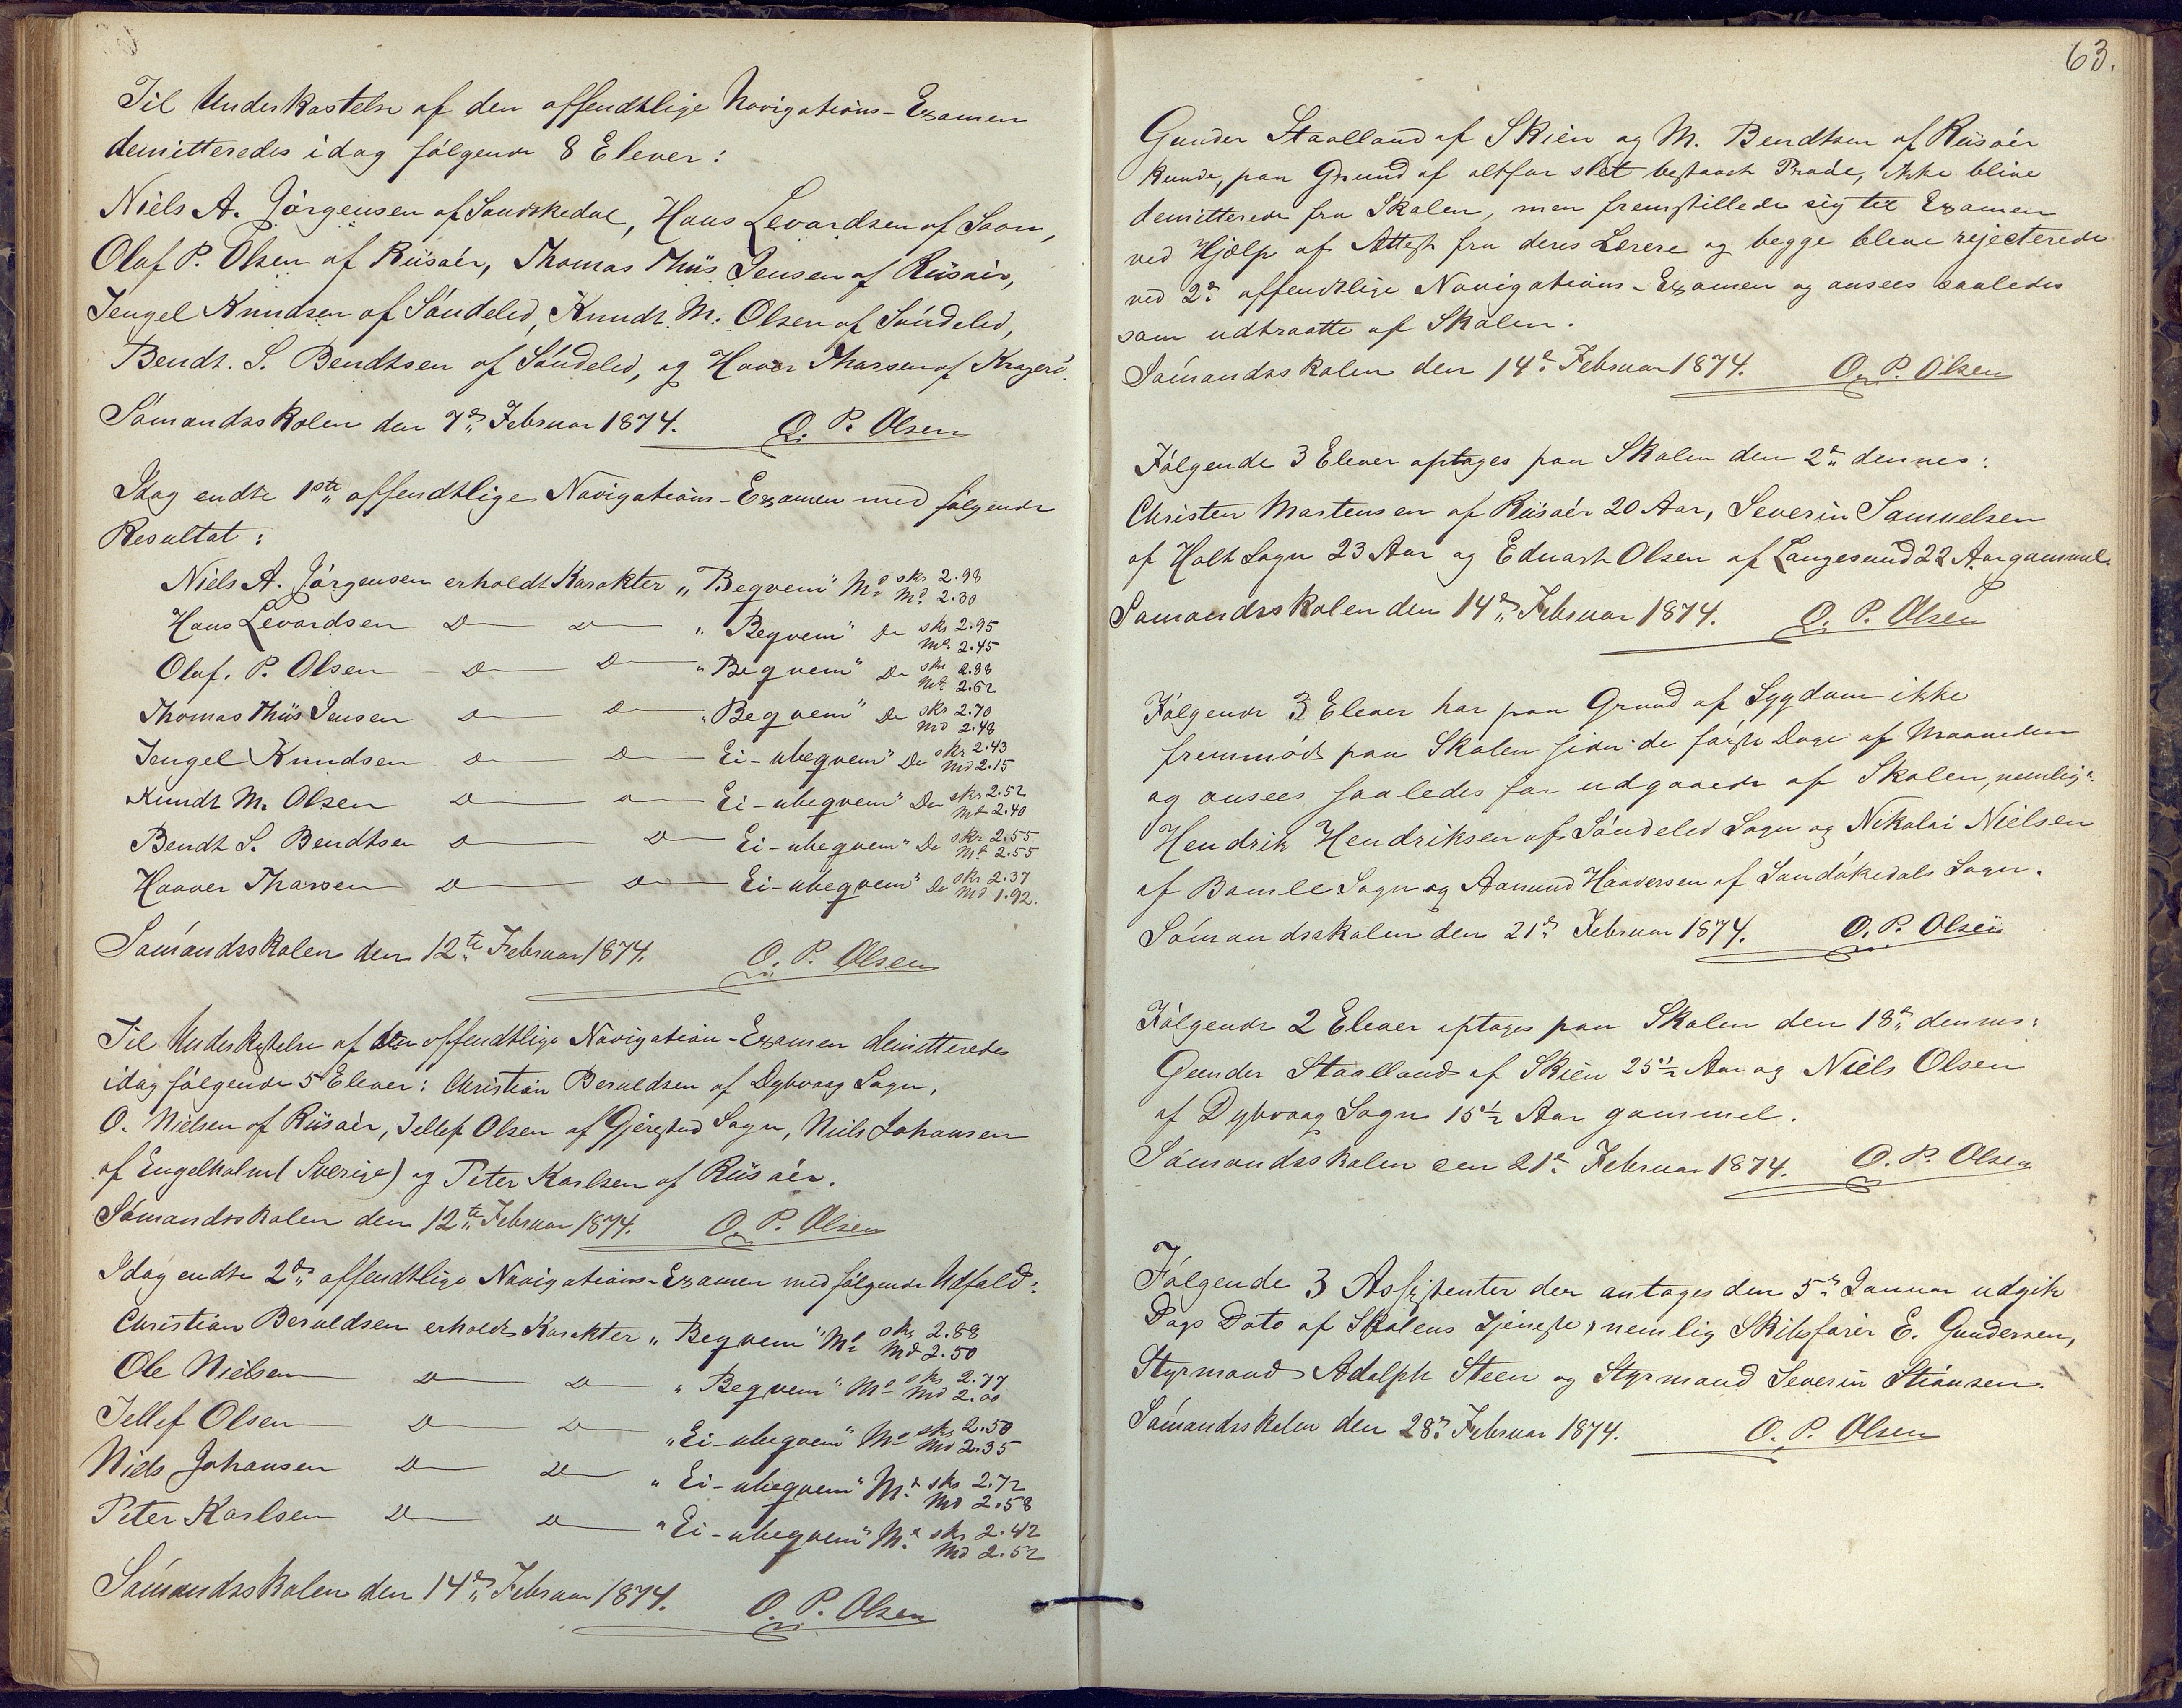 Til Underkastelse af den offendtlige Navigations-Examen
demitteredes idag følgende 8 Elever:
Niels A. Jörgensen af Sandökedal, Hans Levardsen af Saon,
Olaf P. Olsen af Riisøer, Thomas Thiis Jensen af Riisøer,
Tengel Knudsen af Söndeled, Knudt M. Olsen af Söndeled,
Bendt. S. Bendtsen af Söndeled, og Haaver Tharsen af Kragerö.
Sömandsskolen den 7de Februar 1874. O. P. Olsen
Idag endte 1ste offendtlige Navigations-Examen med følgende
Resultat:
Niels A. Jörgensen erholdt Karakter „Beqvem" Md skr 2.98 Md 2.30
Hans Levardsen D D „Beqvem" Do skr 2.95 Md 2.45
Olaf. P. Olsen D D „Beqvem" Do skr 2.88 Md 2.62
Thomas Thiis Jensen D D „Beqvem" Do skr 2.70 Md 2.48
Tengel Knudsen D D Ei-ubeqvem" Do skr 2.43 Md 2.15
Knudt M. Olsen D D Ei-ubeqvem" Do skr 2.52 Md 2.40
Bendt S. Bendtsen D D Ei-ubeqvem" Do skr 2.55 Md 2.55
Haaver Tharsen D D Ei-ubeqvem" Do skr 2.37 Md 1.92.
Sömandsskolen den 12te Februar 1874. O. P. Olsen
Til Underkastelse af den offendtlige Navigation-Examen demitteredes
idag følgende 5 Elever: Christian Beruldsen af Dybvaag Sogn,
O. Nielsen af Riisøer, Tellef Olsen af Gjerestad Sogn, Niels Johansen
af Engelholm (Sverige) og Peter Karlsen af Riisøer.
Sömandsskolen den 12te Februar 1874. O. P. Olsen
Idag endte 2den offendtlige Navigations-Examen med følgende Udfald:
Christian Beruldsen erholdt Karakter „Beqvem" Md skr 2.88 Md 2.50
Ole Nielsen D D „Beqvem" Md skr 2.77 Md 2.00
Tellef Olsen D D „Ei-ubeqvem" Md skr 2.50 Md 2.35
Niels Johansen D D „Ei-ubeqvem" Md skr 2.72 Md 2.58
Peter Karlsen D D „Ei-ubeqvem" Md skr 2.42 Md 2.52
Sömandsskolen den 14de Februar 1874. O. P. Olsen
63.
Gunder Staalland af Skien og M. Bendtsen af Riisøer
kunde, paa Grund af altfor slet bestaaet Prøve, ikke blive
demitterede fra Skolen, men fremstillede sig til Examen
ved Hjælp af Attest fra deres Lærere og begge bleve rejecterede
ved 2den offendtlige Navigations-Examen og ansees saaledes
som udtraatte af Skolen.
Sömandsskolen den 14de Februar 1874. O. P. Olsen
Følgende 3 Elever optages paa Skolen den 2den dennes:
Christen Martensen af Riisøer 20 Aar, Severin Samuelsen
af Holt Sogn 23 Aar og Eduart Olsen af Langesund 22 Aar gammel.
Sömandsskolen den 14de Februar 1874. O. P. Olsen
Følgende 3 Elever har paa Grund af Sygdom ikke
fremmødt paa Skolen siden de første Dage af Maaneden
og ansees saaledes for udgaaede af Skolen, nemlig:
Hendrik Hendriksen af Söndeled Sogn og Nikolai Nielsen
af Bamle Sogn og Aanund Haaversen af Sandökedals Sogn.
Sömandsskolen den 21de Februar 1874. O. P. Olsen
Følgende 2 Elever optages paa Skolen den 18de dennes:
Gunder Staalland af Skien 25 1/2 Aar og Niels Olsen
af Dybvaag Sogn 15 1/2 Aar gammel.
Sömandsskolen den 21de Februar 1874. O. P. Olsen
Følgende 3 Assistenter der antoges den 5te Januar udgik
Dags Dato af Skolens Tjeneste, nemlig Skibsfører E. Gundersen,
Styrmand Adolph Steen og Styrmand Severin Stiansen.
Sömandsskolen den 28de Februar 1874. O. P. Olsen